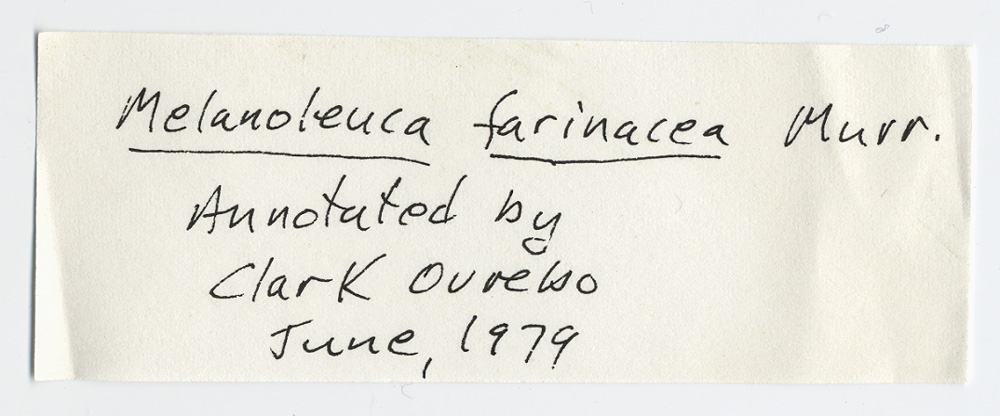 Melanoleuca farinacea Murr.
Annotated by
Clark Ovrebo
June, 1979